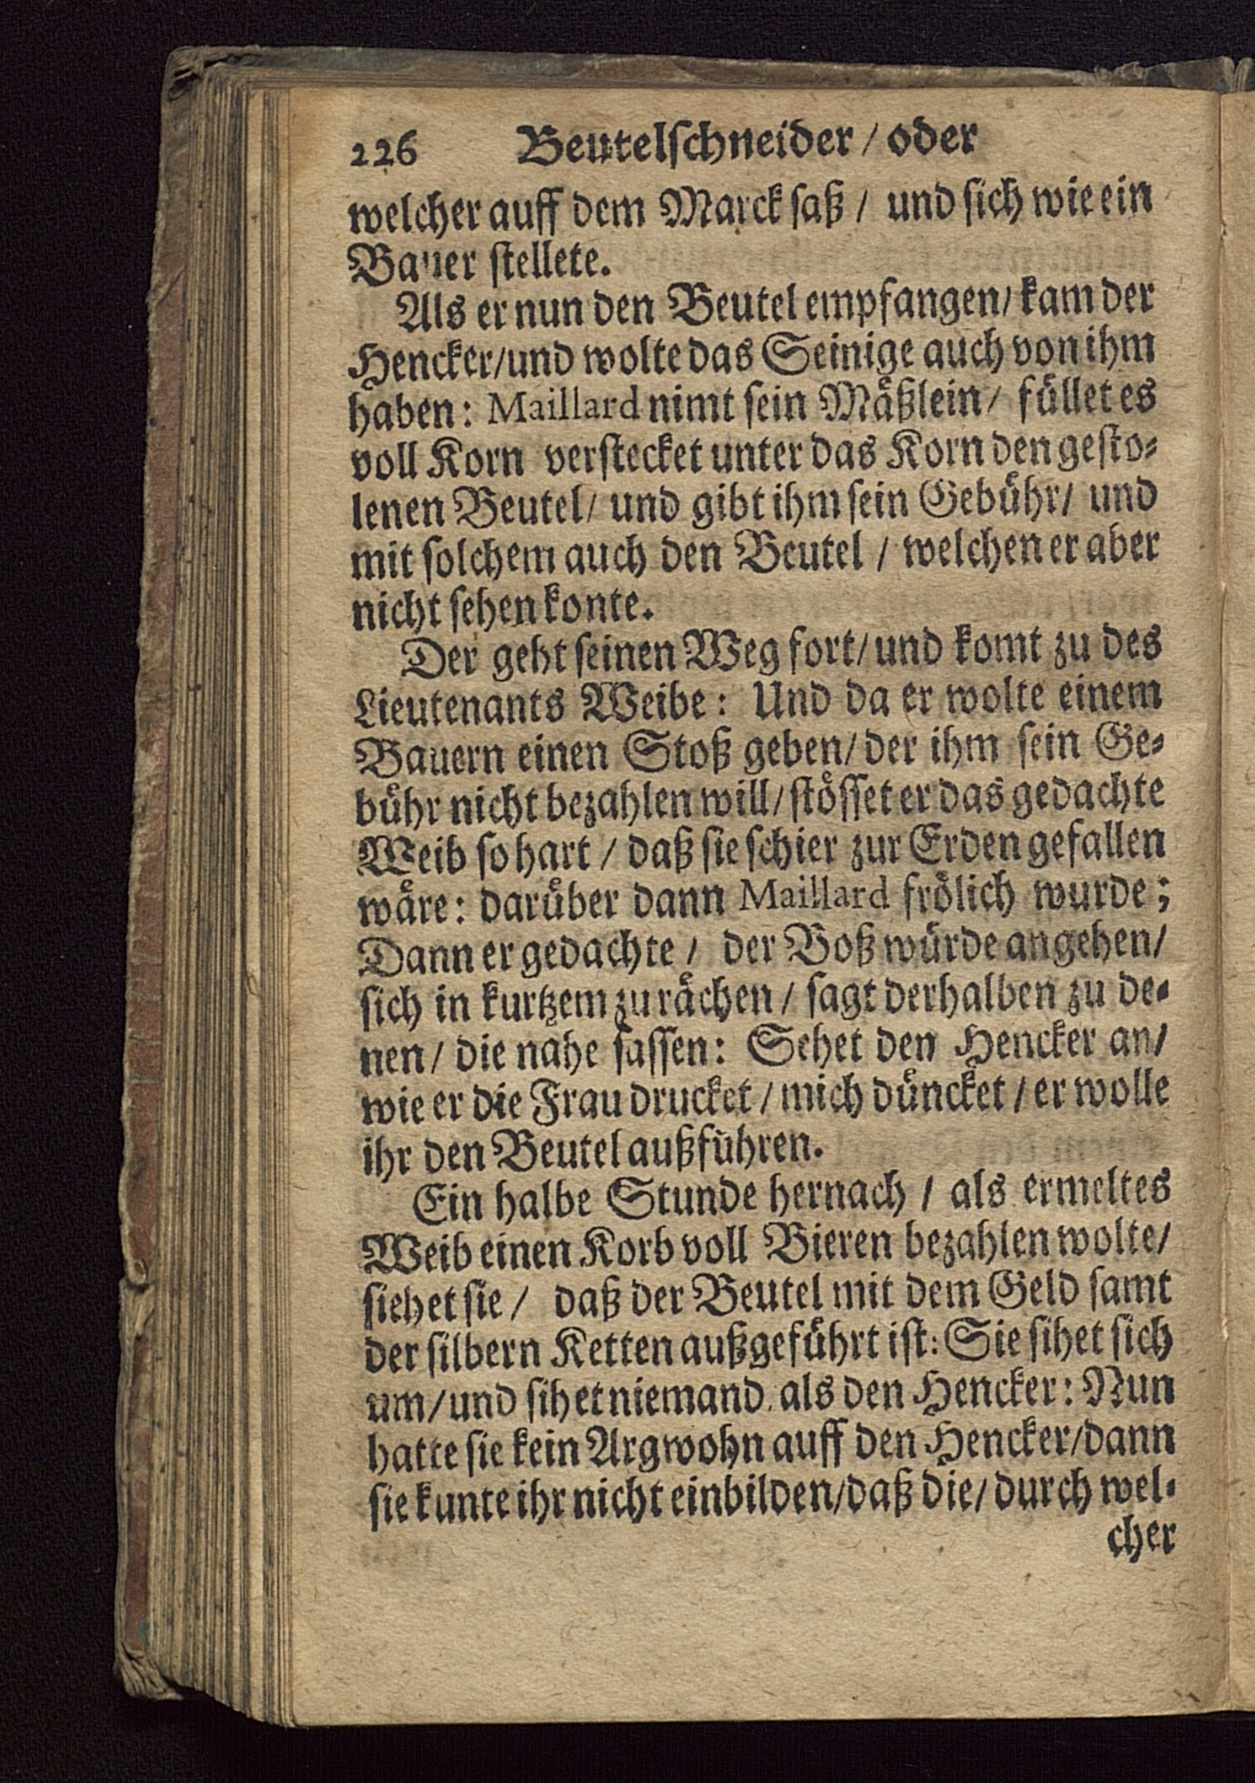 226 Beutelschneider / oder
welcher auff dem Marck saß / und sich wie ein
Bauer stellete.
Als er nun den Beutel empfangen / kam der
Hencker / und wolte das Seinige auch von ihm
haben: Maillard nimt sein Mäßlein / füllet es
voll Korn verstecket unter das Korn den gesto-
lenen Beutel / und gibt ihm sein Gebühr / und
mit solchem auch den Beutel / welchen er aber
nicht sehen konte.
Der geht seinen Weg fort / und komt zu des
Lieutenants Weibe: Und da er wolte einem
Bauern einen Stoß geben / der ihm sein Ge-
bühr nicht bezahlen will / stösset er das gedachte
Weib so hart / daß sie schier zur Erden gefallen
wäre: darüber dann Maillard frölich wurde;
Dann er gedachte / der Boß würde angehen /
sich in kurtzem zu rächen / sagt derhalben zu de-
nen / die nahe sassen: Sehet den Hencker an /
wie er die Frau drucket / mich düncket / er wolle
ihr den Beutel außführen.
Ein halbe Stunde hernach / als ermeltes
Weib einen Korb voll Bieren bezahlen wolte /
siehet sie / daß der Beutel mit dem Geld samt
der silbern Ketten außgeführt ist: Sie sihet sich
um / und sihet niemand als den Hencker: Nun
hatte sie kein Argwohn auff den Hencker / dann
sie kunte ihr nicht einbilden / daß die / durch wel-
cher